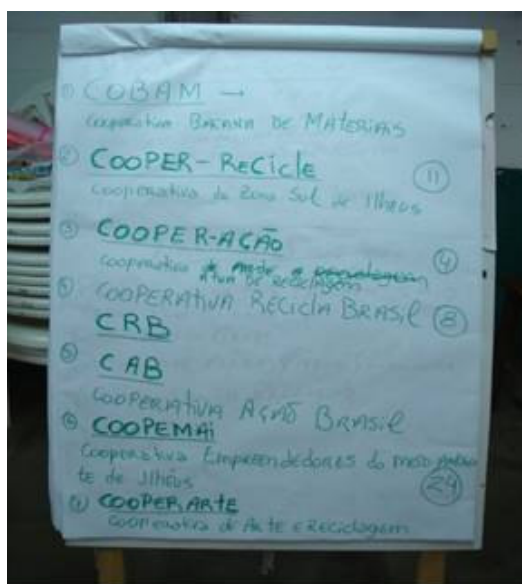 ① COBAM →
Cooperativa BACANA DE MATERIAIS
② COOPER-ReCicle
⑪
Cooperativa da Zona Sul de Ilhéus
③ COOPER-AÇÃO
④
Cooperativa
ATIVA DE RECICLAGEM
COOPERATIVA RECICLA BRASIL ⑧
CRB
⑤ CAB
COOPERATIVA AÇÃO BRASIL
⑥ COOPEMAi
Cooperativa Empreendedores do meio Ambien
te de Ilhéus
㉔
COOPERARTE
Cooperativa de Arte e Reciclagem